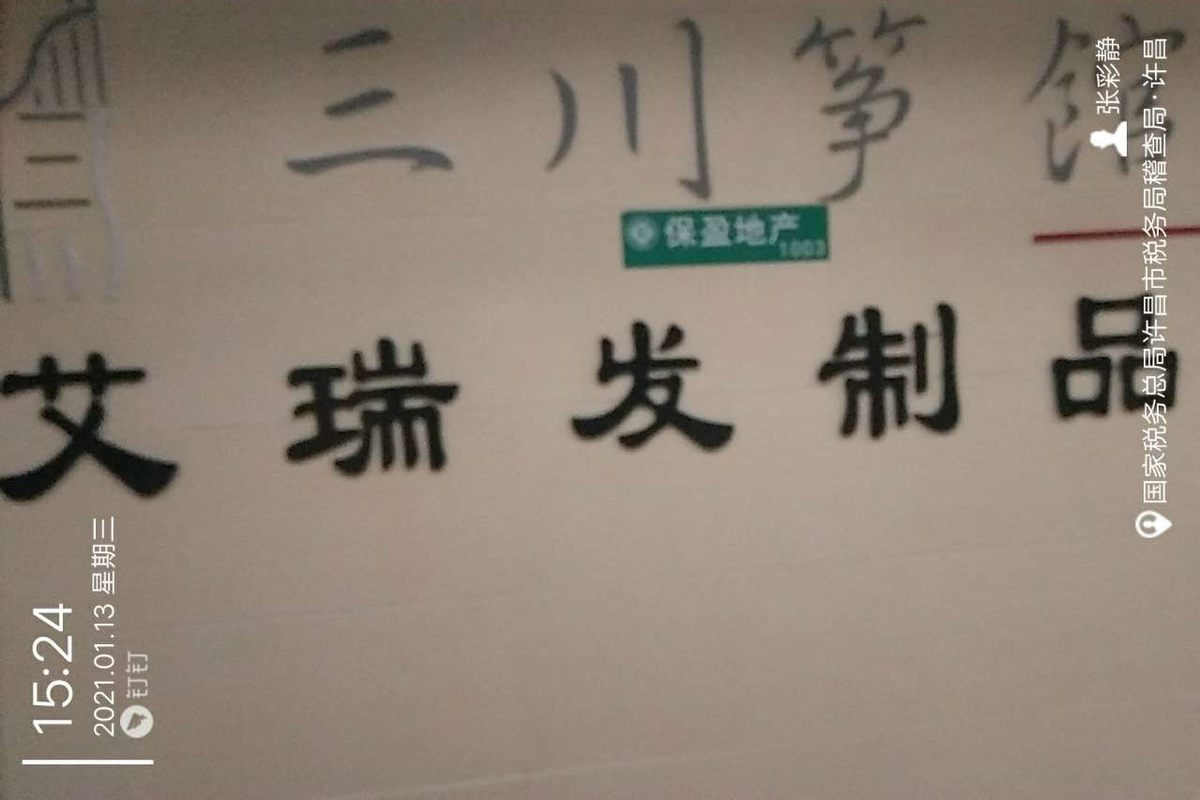 三川筝館
保盈地产
1003
艾瑞发制品
15:24
2021.01.13 星期三
钉钉
张彩静
国家税务总局许昌市税务局稽查局·许昌